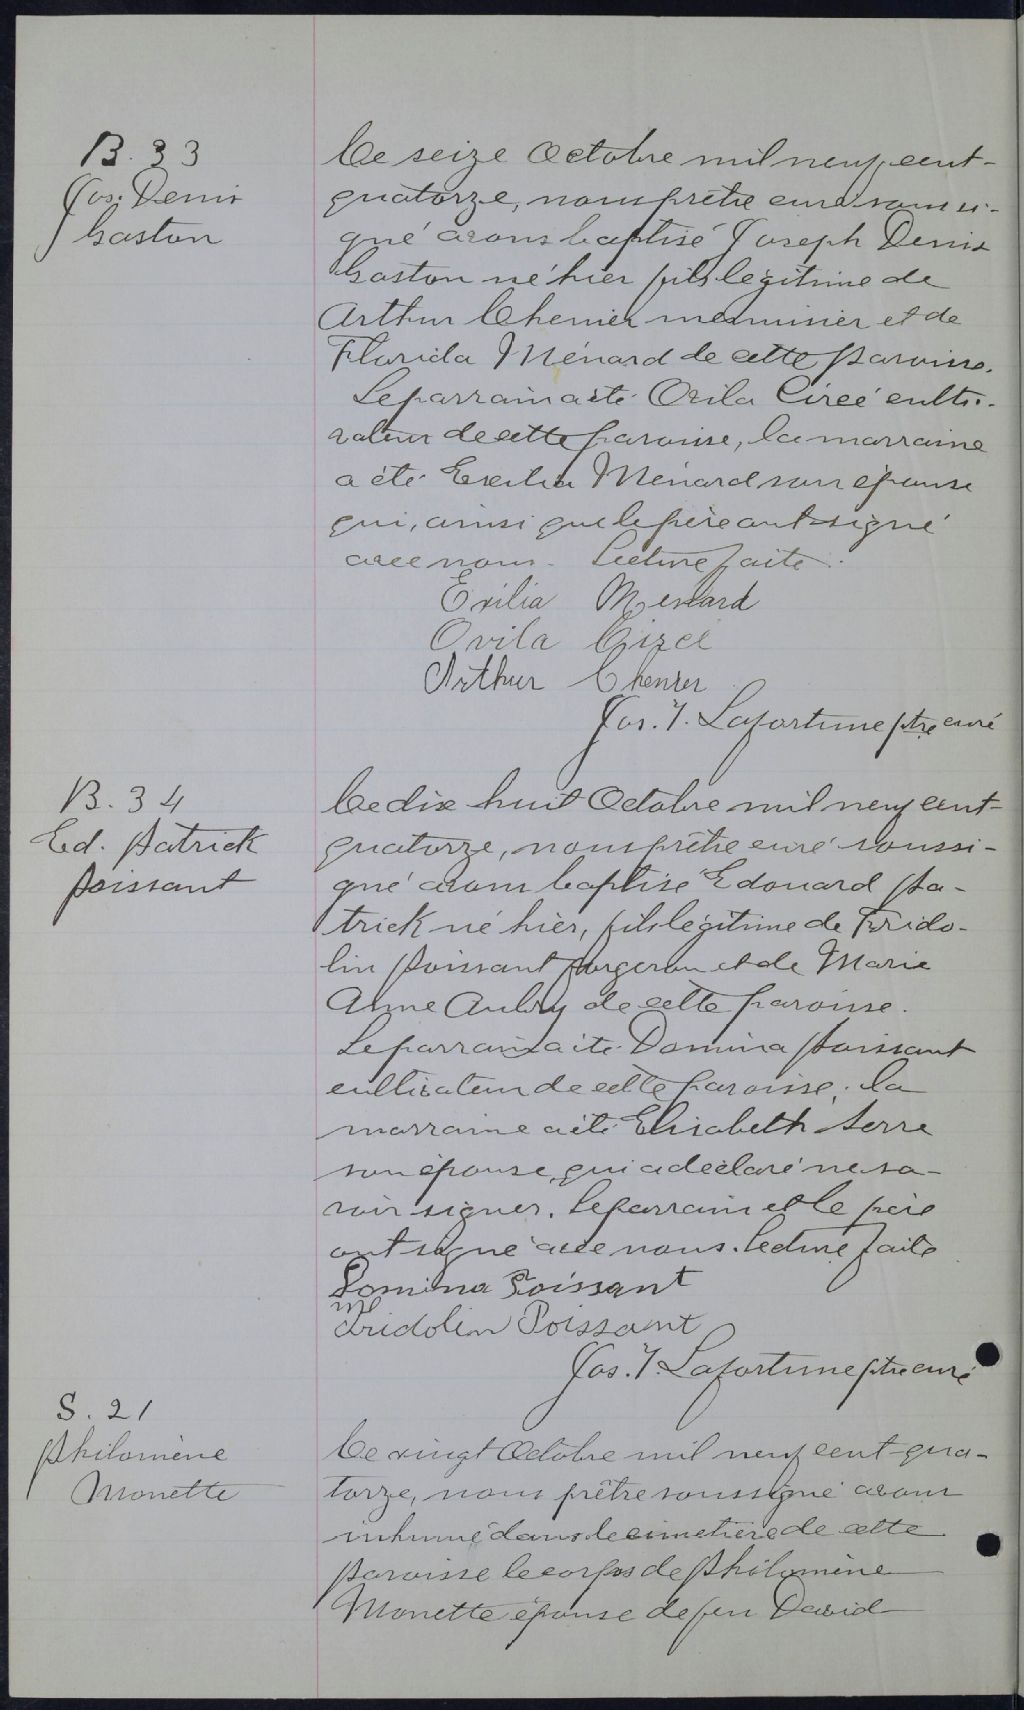 B. 33
Jos. Denis
Gaston
Ce seize Octobre mil neuf cent-
quatorze, nous prêtre curé soussi-
gné avons baptisé Joseph Denis
Gaston né hier fils légitime de
Arthur Chenier menuisier et de
Florida Ménard de cette paroisse.
Le parrain a été Ovila Circé culti-
vateur de cette paroisse, la marraine
a été Exilia Ménard son épouse
qui, ainsi que le père ont signé
avec nous. Lecture faite.
Exilia Menard
Ovila Circé
Arthur Chenier
Jos. T. Lafortune ptre curé
B. 34
Ed. Patrick
Poissant
Ce dix huit Octobre mil neuf cent-
quatorze, nous prêtre curé soussi-
gné avons baptisé Edouard Pa-
trick né hier, fils légitime de Frido-
lin Poissant forgeron et de Marie
Anne Aubry de cette paroisse.
Le parrain a été Domina Poissant
cultivateur de cette paroisse, la
marraine a été Elisabeth Serre
son épouse, qui a déclaré ne sa-
voir signer. Le parrain et le père
ont signé avec nous. Lecture faite
Domina Poissant
Fridolin Poissant
Jos. T. Lafortune ptre curé
S. 21
Philomène
Monette
Ce vingt Octobre mil neuf cent-qua-
torze, nous prêtre soussigné avons
inhumé dans le cimetière de cette
paroisse le corps de Philomène
Monette épouse de feu David